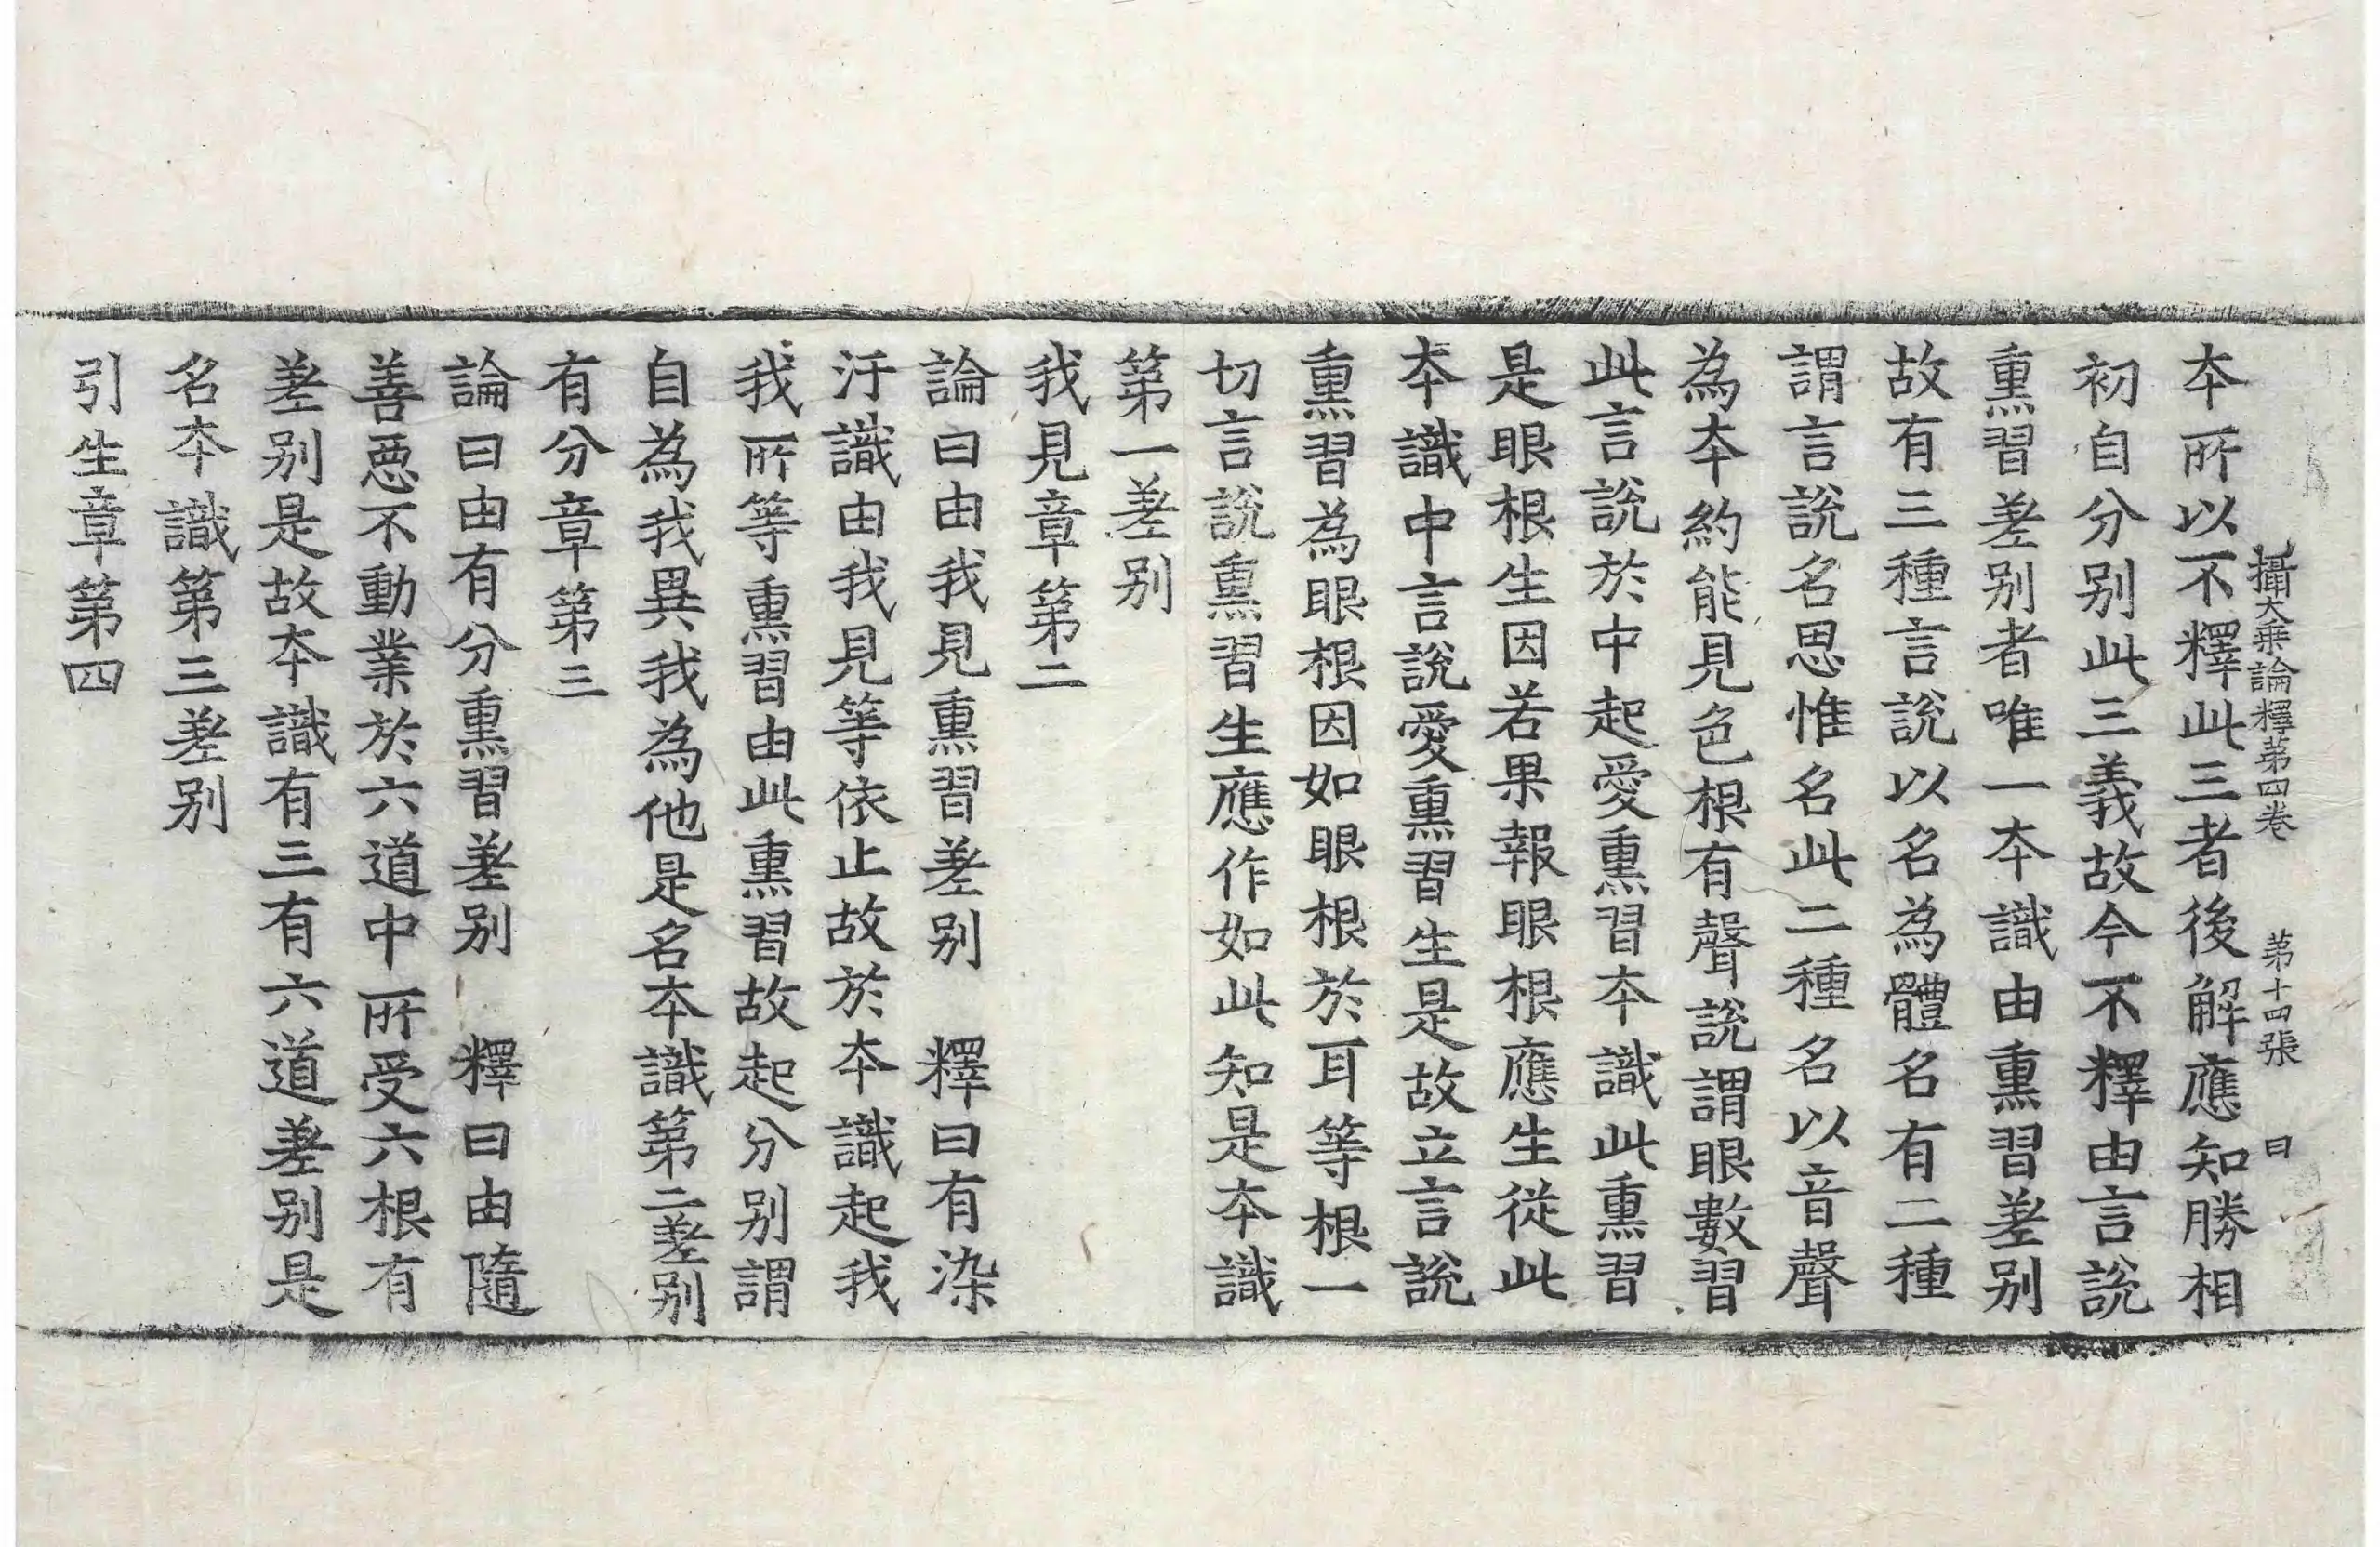 攝大乘論釋第四卷 第十四張 曰
本所以不釋此三者後解應知勝相
初自分别此三義故今不釋由言說
熏習差别者唯一本識由熏習差别
故有三種言說以名為體名有二種
謂言說名思惟名此二種名以音聲
為本約能見色根有聲說謂眼數習
此言說於中起愛熏習本識此熏習
是眼根生因若果報眼根應生從此
本識中言說愛熏習生是故立言說
熏習為眼根因如眼根於耳等根一
切言說熏習生應作如此知是本識
第一差别
我見章第二
論曰由我見熏習差别 釋曰有染
汙識由我見等依止故於本識起我
我所等熏習由此熏習故起分别謂
自為我異我為他是名本識第二差别
有分章第三
論曰由有分熏習差别 釋曰由隨
善惡不動業於六道中所受六根有
差别是故本識有三有六道差别是
名本識第三差别
引生章第四